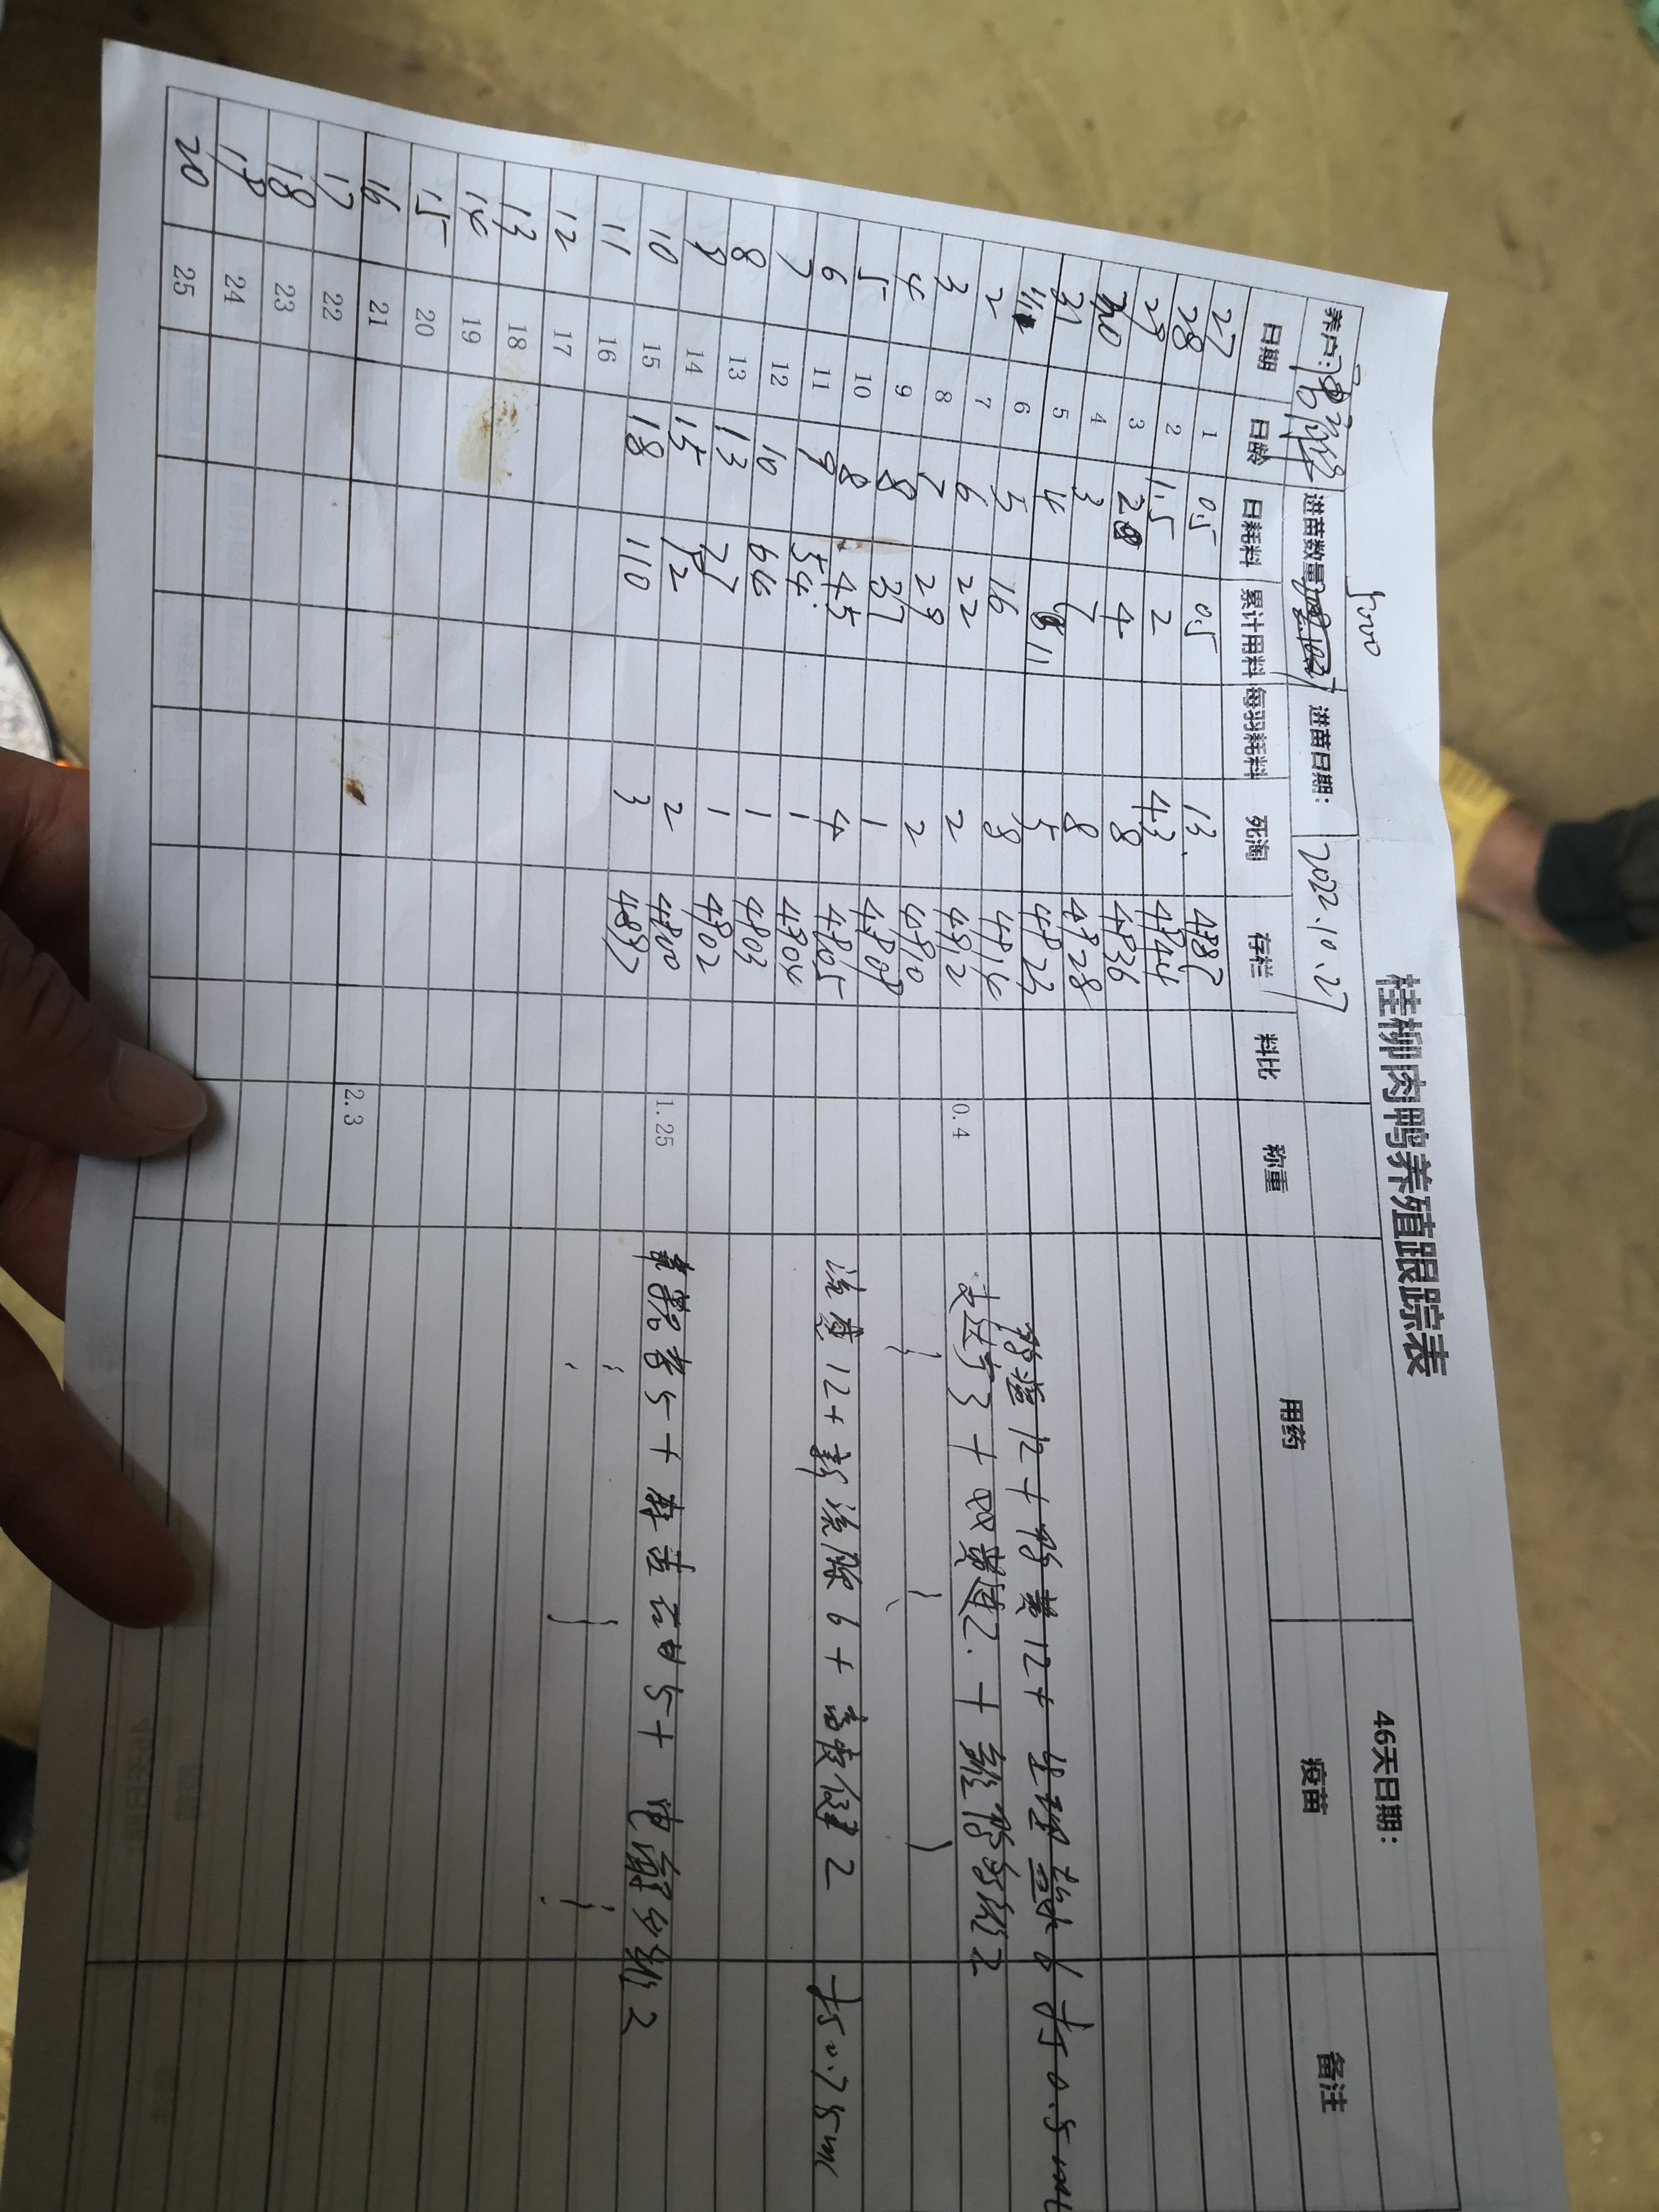 桂柳肉鸭养殖跟踪表
5000
养户: 进苗数量: 进苗日期: 2022.10.27 46天日期:
日期 日龄 日耗料 累计用料 每羽耗料 死淘 存栏 料比 称重 用药 疫苗 备注
27 1 0.5 0.5 13. 4887
28 2 1.5 2 43 4844
29 3 2 4 8 4836
30 4 3 7 8 4828
31 5 4 11 5 4823
1/11 6 5 16
2 7 6 22 2 4812 0.4
3 8 7 29 2 4810
4 9 8 37 1 4809
5 10 8 45 4 4805 流感12+新流腺6+ 2 打0.75ml
6 11 9 54 1 4804
7 12 10 64 1 4803
8 13 13 77 1 4802
9 14 15 92 2 4800
10 15 18 110 3 4837 1.25 5+ 5+电解多维2
11 16
12 17
13 18
14 19
15 20
16 21
17 22 2.3
18 23
19 24
20 25